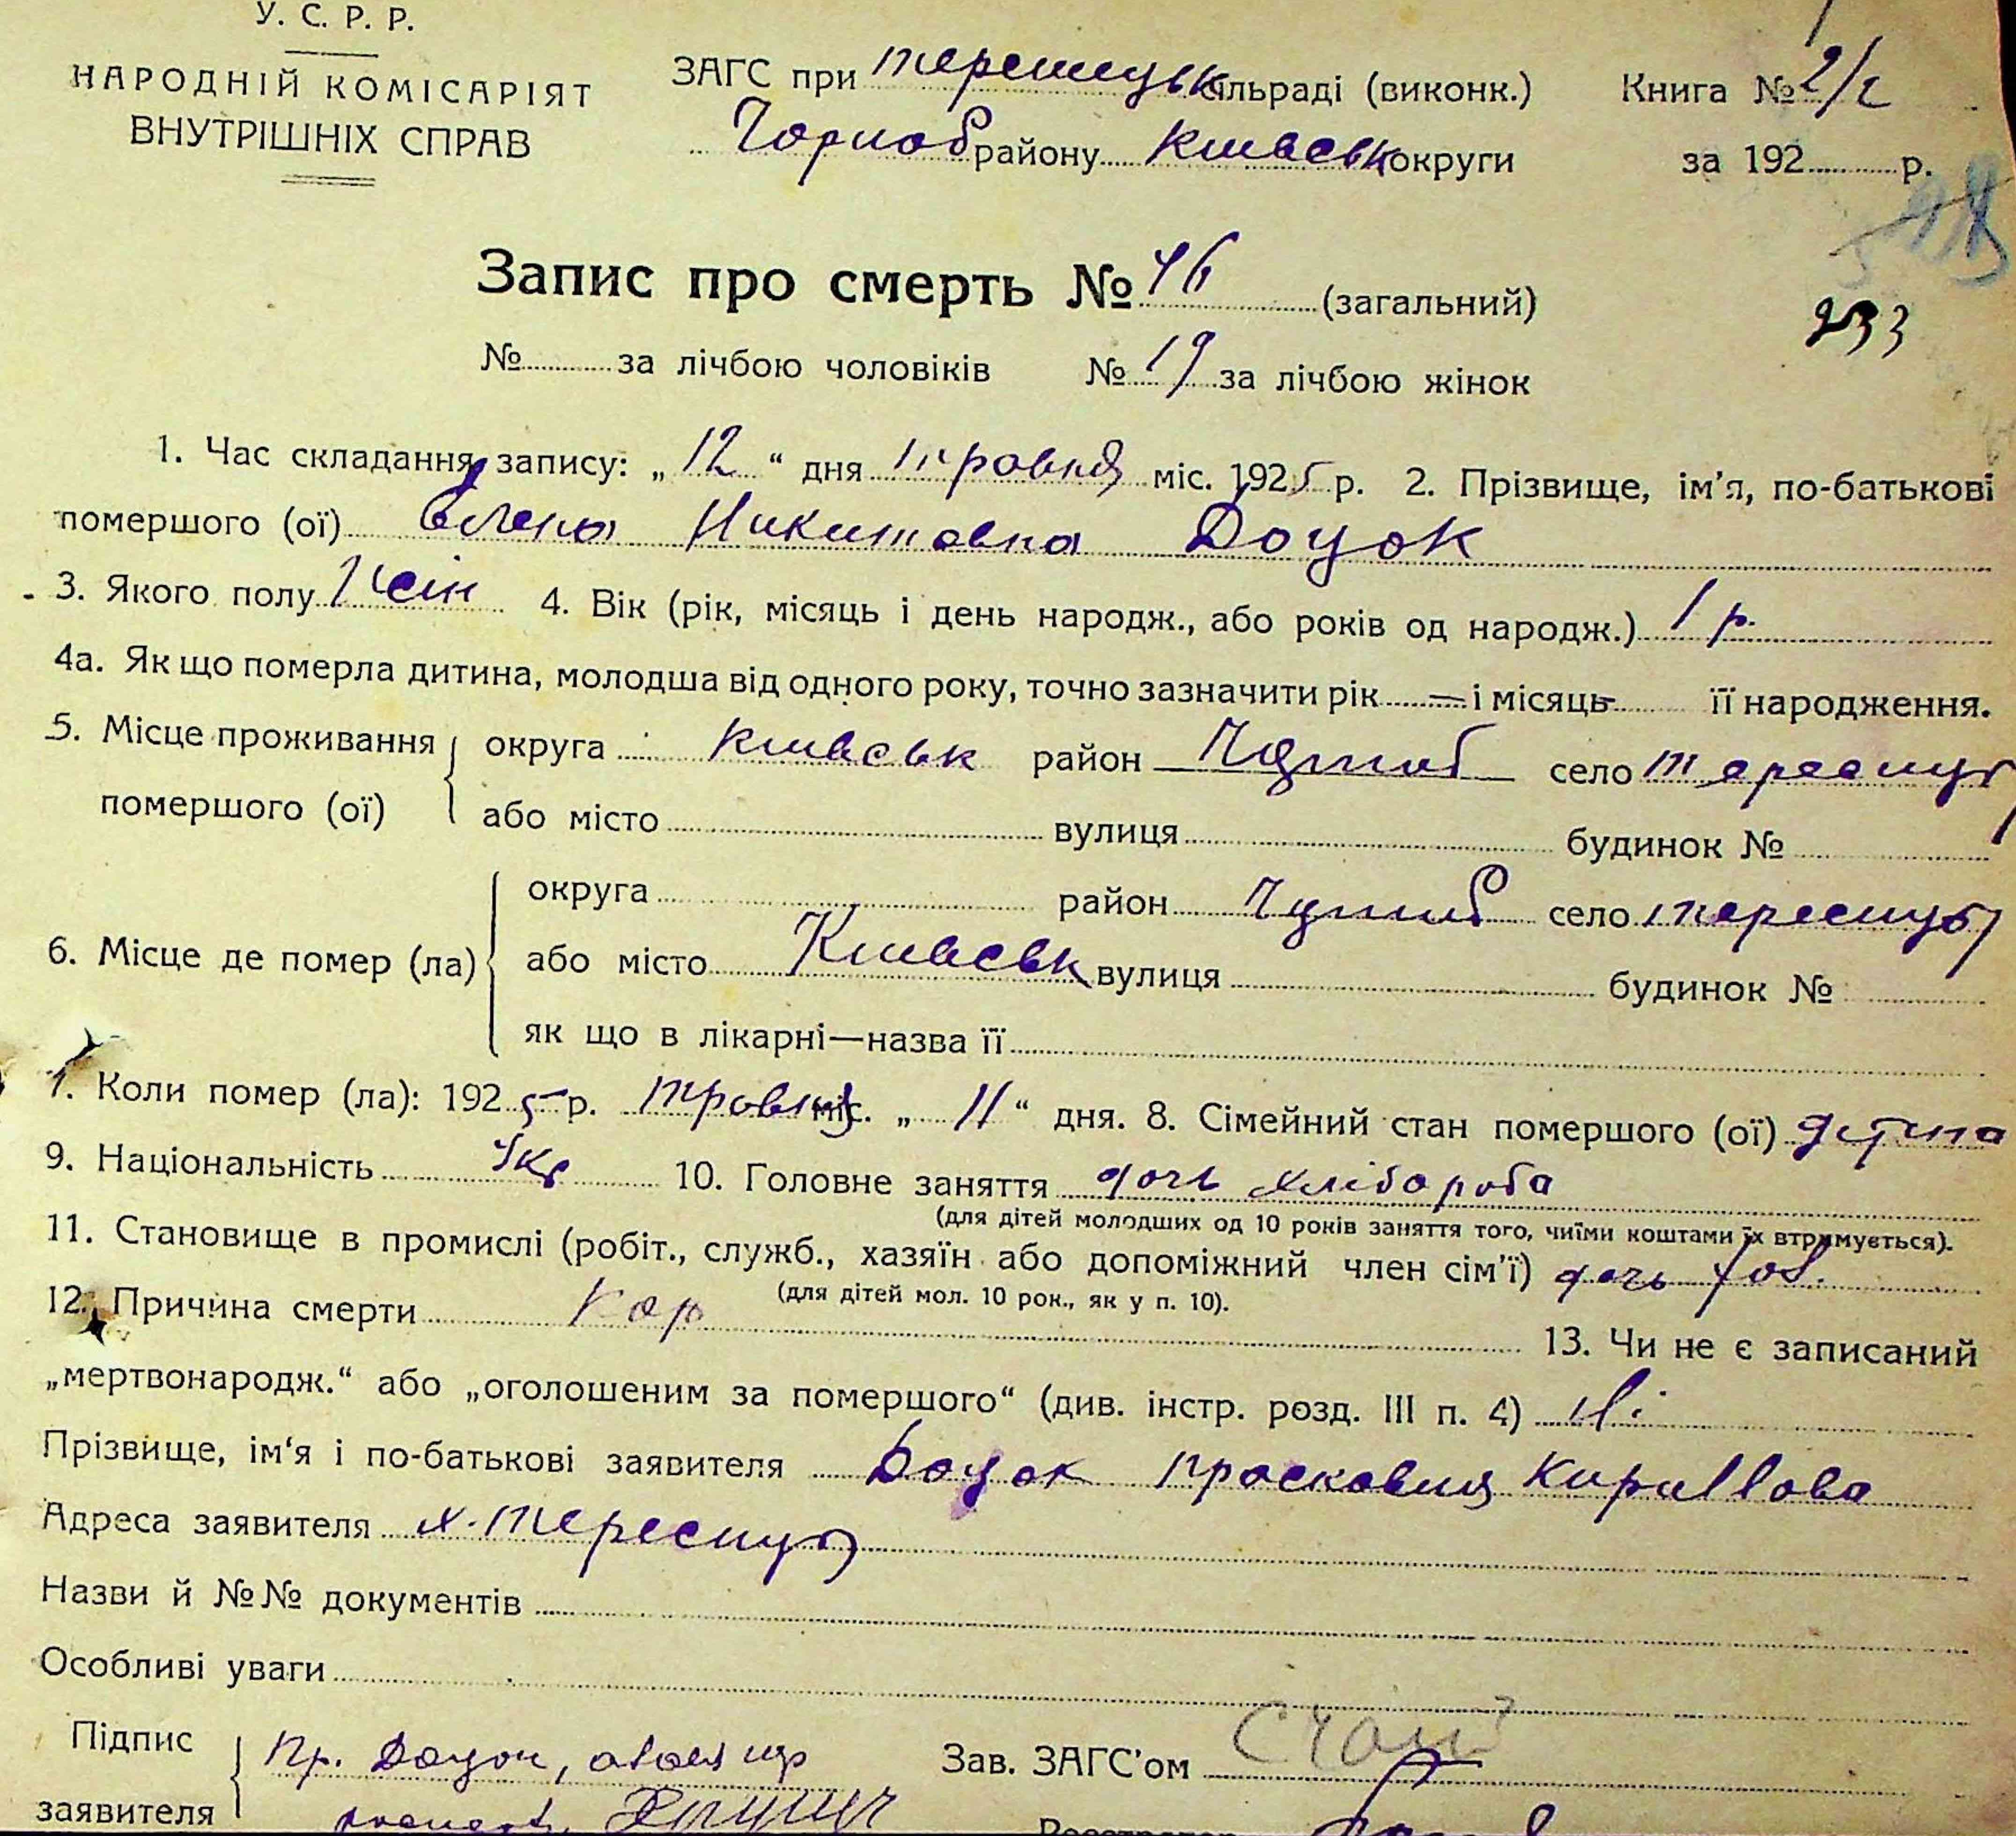 У. С. Р. Р.
НАРОДНІЙ КОМІСАРІЯТ
ВНУТРІШНІХ СПРАВ
ЗАГС при сільраді (виконк.)
Чорноб району Київськ округи
Книга № 2/2
за 192 р.
233
Запис про смерть № 46 (загальний)
№ за лічбою чоловіків № 19 за лічбою жінок
1. Час складання запису: „12“ дня травня міс. 1925 р. 2. Прізвище, ім'я, по-батькові
помершого (ої) Єлена Никитовна Доцок
3. Якого полу Жін 4. Вік (рік, місяць і день народж., або років од народж.) 1 р.
4а. Як що померла дитина, молодша від одного року, точно зазначити рік — і місяць — її народження.
5. Місце проживання помершого (ої) округа Київськ район Чорноб село
або місто вулиця будинок №
6. Місце де помер (ла) округа район Чорноб село
або місто Київськ вулиця будинок №
як що в лікарні—назва її
7. Коли помер (ла): 1925 р. травня міс. „11“ дня. 8. Сімейний стан помершого (ої) дитина
9. Національність Укр 10. Головне заняття дочь хлібороба
(для дітей молодших од 10 років заняття того, чиїми коштами їх втримується).
11. Становище в промислі (робіт., служб., хазяїн або допоміжний член сім'ї) дочь
(для дітей мол. 10 рок., як у п. 10).
12. Причина смерти Кор 13. Чи не є записаний
„мертвонародж.“ або „оголошеним за помершого“ (див. інстр. розд. III п. 4) Ні
Прізвище, ім'я і по-батькові заявителя Доцок Просковия Кирилlова
Адреса заявителя х.
Назви й №№ документів
Особливі уваги
Підпис заявителя Пр. Доцок,
Зав. ЗАГС'ом